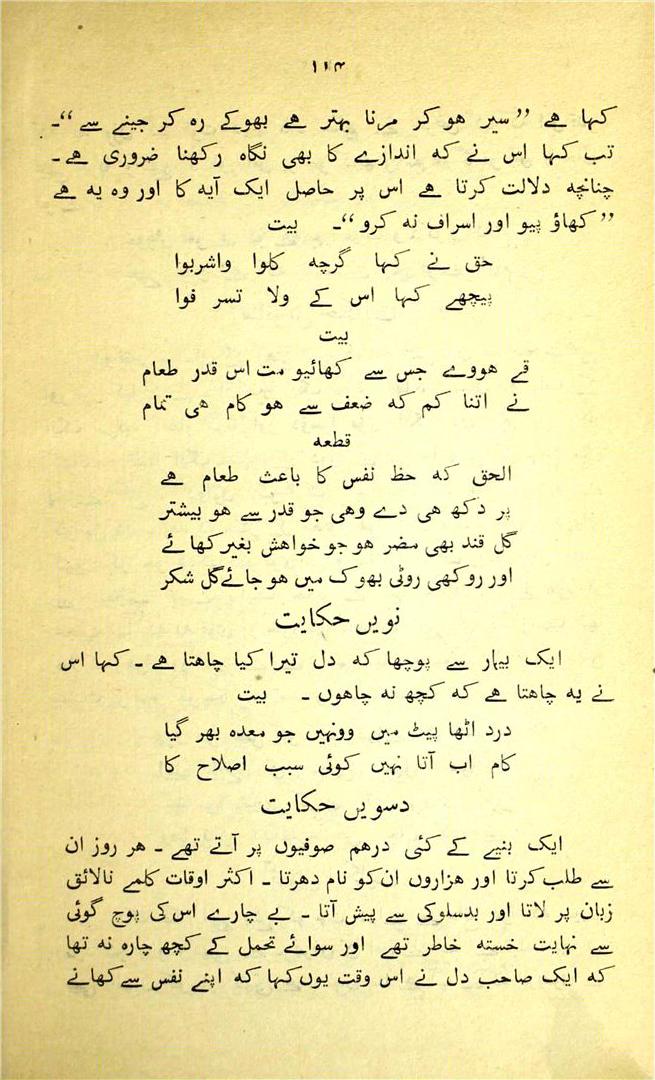 ۱۱۴
کہا ہے ”سیر ہو کر مرنا بہتر ہے بھوکے رہ کر جینے سے“۔
تب کہا اس نے کہ اندازے کا بھی نگاہ رکھنا ضروری ہے۔
چنانچہ دلالت کرتا ہے اس پر حاصل ایک آیہ کا اور وہ یہ ہے
”کھاؤ پیو اور اسراف نہ کرو“۔ بیت
حق نے کہا گرچہ کلوا واشربوا
پیچھے کہا اس کے ولا تسر فوا
بیت
قے ہووے جس سے کھائیو مت اس قدر طعام
نے اتنا کم کہ ضعف سے ہو کام ہی تمام
قطعہ
الحق کہ حظ نفس کا باعث طعام ہے
پر دکھ ہی دے وہی جو قدر سے ہو بیشتر
گل قند بھی مضر ہو جو خواہش بغیر کھائے
اور روکھی روٹی بھوک میں ہو جائے گل شکر
نویں حکایت
ایک بیمار سے پوچھا کہ دل تیرا کیا چاہتا ہے۔ کہا اس
نے یہ چاہتا ہے کہ کچھ نہ چاہوں۔ بیت
درد اٹھا پیٹ میں وونہیں جو معدہ بھر گیا
کام اب آتا نہیں کوئی سبب اصلاح کا
دسویں حکایت
ایک بنیے کے کئی درہم صوفیوں پر آتے تھے۔ ہر روز ان
سے طلب کرتا اور ہزاروں ان کو نام دھرتا۔ اکثر اوقات کلمے نالائق
زبان پر لاتا اور بدسلوکی سے پیش آتا۔ بے چارے اس کی پوچ گوئی
سے نہایت خستہ خاطر تھے اور سوائے تحمل کے کچھ چارہ نہ تھا
کہ ایک صاحب دل نے اس وقت یوں کہا کہ اپنے نفس سے کھانے